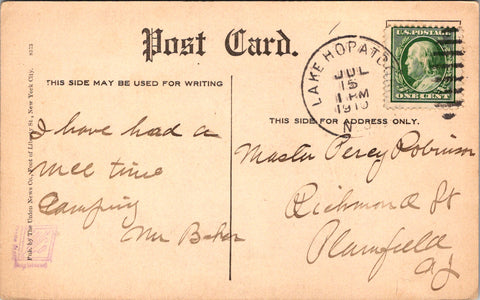 Post Card.
8373
THIS SIDE MAY BE USED FOR WRITING
THIS SIDE FOR ADDRESS ONLY.
Pub. by The Union News Co., Foot of Liberty St., New York City.
LAKE HOPATC
JUL
15
1 PM
1910
N
U.S. POSTAGE
ONE CENT
I have had a
nice time
Camping
Mr Baker
Master Percy Robinson
Richmond St
Plainfield
NJ